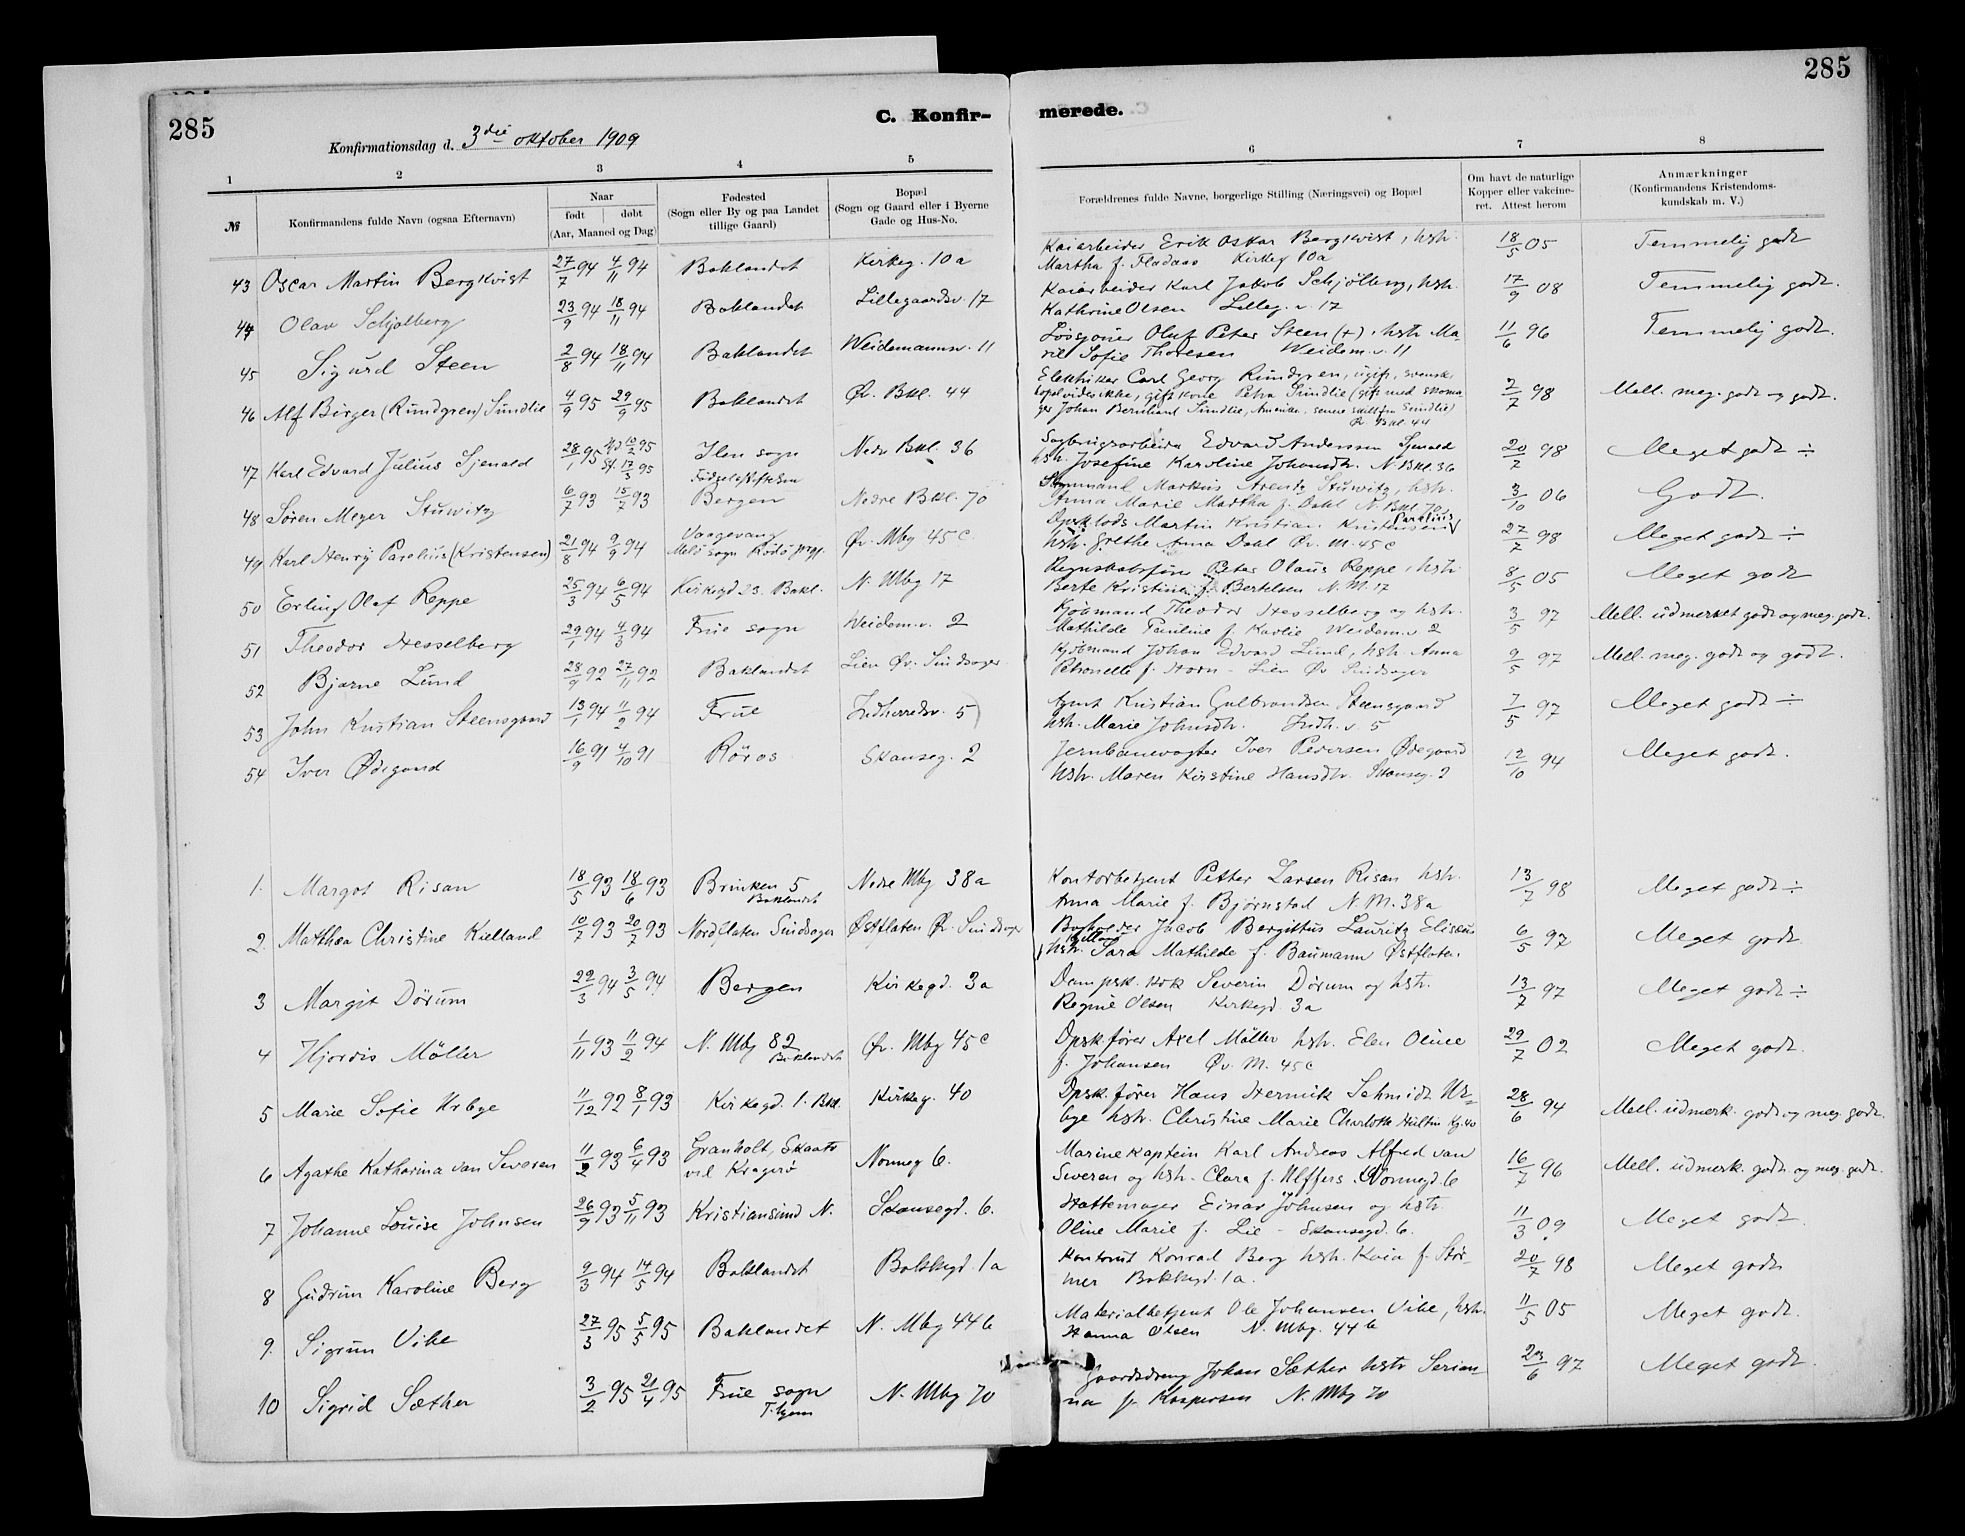 285
285
C. Konfir-
merede.
Konfirmationsdag d. 3die oktober 1909
1 2 3 4 5 6 7 8
№ Konfirmandens fulde Navn (ogsaa Efternavn) Naar født døbt (Aar, Maaned og Dag) Fødested (Sogn eller By og paa Landet tillige Gaard) Bopæl (Sogn og Gaard eller i Byerne Gade og Hus-No. Forældrenes fulde Navne, borgerlige Stilling (Næringsvei) og Bopæl Om havt de naturlige Kopper eller vakcineret. Attest herom Anmærkninger (Konfirmandens Kristendomskundskab m. V.)
43 Oscar Martin Bergkvist 27/7 94 4/11 94 Baklandet Kirkeg. 10a Kaiarbeider Erik Oskar Bergkvist, hstr. 18/5 05 Temmelig godt
Martha f. Fladaas Kirkeg 10a
44 Olav Schjølberg 23/9 94 18/11 94 Baklandet Lillegaardsv. 17 Kaiarbeider Karl Jakob Schjölberg, hstr. 17/9 08 Temmelig godt.
Kathrine Olsen Lilleg. v. 17
45 Sigurd Steen 2/8 94 18/11 94 Baklandet Weidemannsv. 11 Løsgjöner Oluf Peter Steen (+), hstr Ma- 11/6 96 Temmelig godt.
Sofie Thoresen Weidem. v. 11
46 Alf Birger (Rundgren) Sundlie 4/9 95 29/9 95 Baklandet Øv. Bkl. 44 Elektriker Carl Georg Rundgren, ugift, svensk, 2/7 98 Mell. meg. godt og godt.
vides ikke, gift kone Petra Sundlie (gift med skoma-
ger Johan Bernhard Sundlie, Amerika, senere skilt fra Sundlie)
Øv Bkl. 44
47 Karl Edvard Julius Sjenald 28/1 95 10/2 95 17/3 95 Ilen sogn Fødselsstiftelsen Nedr Bkl. 36 Sagbrugsarbeider Edvard Andersen Sjenald 20/7 98 Meget godt ÷
hstr. Josefine Karoline Johansdtr. N. Bkl. 36
48 Søren Meyer Stuwitz 6/7 93 15/7 93 Bergen Nedre Bkl. 70 Markus Arentz Stuwitz, hstr. 3/10 06 Godt.
Anna Marie Martha f. Dahl N. Bkl. 70
49 Karl Henry Parelius (Kristensen) 21/8 94 9/9 94 Vaagevang Melö sogn Rödö prgj. Øv. Mbg 45c Dpsk.lods Martin Kristian Kristensen Parelius 27/7 98 Meget godt ÷
hstr. Grethe Anna Dahl Øv. M. 45c
50 Erling Olaf Reppe 25/3 94 6/5 94 Kirkegd 23. Bakl. N. Mbg 17 Regnskabsfører Peter Olaus Reppe, hstr. 8/5 05 Meget godt
Berte Kristine f. Bertelsen N. M. 17
51 Theodor Hesselberg 29/1 94 4/3 94 Frue sogn Weidem. v. 2 Kjøbmand Theodor Hesselberg og hstr. 3/5 97 Mell. udmerket godt og meg. godt.
Mathilde Pauline f. Karlie Weidem. v 2
52 Bjarne Lund 28/9 92 27/11 92 Baklandet Lien Øv. Sindsager Kjøbmand Johan Edvard Lund, hstr. Anna 9/5 97 Mell. meg. godt og godt.
Petronelle f. Horn - Lien Øv Sindsager
53 John Kristian Steensgaard 13/1 94 11/2 94 Frue Indherredsv. 5 Agent Kristian Gulbrandsen Steensgaard 7/5 97 Meget godt ÷
hstr. Marie Johnsdtr. Indh. v 5
54 Iver Ødegaard 16/9 91 4/10 91 Röros Skanseg. 2 Jernbanevogter Iver Pedersen Ødegaard 12/10 94 Meget godt.
hstr. Maren Kirstine Hansdtr. Skanseg. 2
1. Margot Risan 18/5 93 18/6 93 Brinken 5 Baklandet Nedre Mbg 38a Kontorbetjent Petter Larsen Risan hstr. 13/7 98 Meget godt ÷
Anna Marie f. Bjørnstad N. M. 38a
2. Matthea Christine Kielland 10/7 93 20/7 93 Nordflaten Sindsager Østflaten Øv. Sindsager Bogholder Jacob Bergittus Lauritz Elisæus 6/5 97 Meget godt
Kielland hstr. Sara Mathilde f. Baumann Østflaten.
3 Margit Dörum 22/3 94 3/5 94 Bergen Kirkegd. 3a Dampsk. kok Severin Dörum og hstr. 13/7 97 Meget godt ÷
Regine Olsen Kirkegd. 3a
4 Hjordis Möller 1/11 93 11/2 94 N. Mbg 82 Baklandet Øv. Mbg 45c Dpsk.fører Axel Möller hstr. Elen Oline 29/7 02 Meget godt.
f. Johansen Øv. M. 45c
5 Marie Sofie Urbye 11/12 92 8/1 93 Kirkegd. 1. Bkl. Kirkeg. 40 Dpsk.fører Hans Henrik Schmidt Ur- 28/6 94 Mell. udmerk. godt og meg. godt.
bye hstr. Christine Marie Charlotte Hultin Kg. 40
6 Agathe Katharina van Severen 11/2 93 6/4 93 Granholt, Skaatø ved Kragerø Nonneg 6. Marinekaptein Karl Andreas Alfred van 16/7 96 Mell. udmerk. godt og meg. godt.
Severen og hstr. Clara f. Ulffers. Nonnegd. 6
7 Johanne Louise Johnsen 26/9 93 5/11 93 Kristiansund N. Skansegd. 6. Hattemager Einar Johnsen og hstr. 11/3 09 Meget godt.
Oline Marie f. Lie - Skansegd. 6.
8 Gudrun Karoline Berg 9/3 94 14/5 94 Baklandet Bakkegd. 1a Kontorist Konrad Berg hstr. Kaia f. Stör- 20/7 98 Meget godt
mer Bakkegd. 1a.
9. Sigrun Vibe 27/3 95 5/5 95 Baklandet N. Mbg 44b Materialbetjent Ole Johansen Vibe, hstr. 11/5 05 Meget godt.
Hanna Olsen N. Mbg. 44b
10 Sigrid Sæther 3/2 95 21/4 95 Frue sogn T.hjem N. Mbg 70 Gaardsdreng Johan Sæther hstr Serian- 29/6 97 Meget godt.
na f. Kaspersen N. Mbg 70